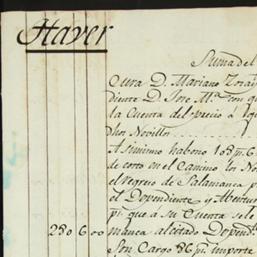 Haver
Suma del
Cura D. Mariano Zoray
diente D. Jose M.ª con qu
la Cuenta del precio á
dhos Novillos
Asimismo habono 18 p.s 6
de corto en el Camino los No
el regreso de Salamanca p
el Dependiente y Abertur
p.r que a su Cuenta sele
280 6 00 manca alcitado Depend.
Son Cargo 86 p.s importe